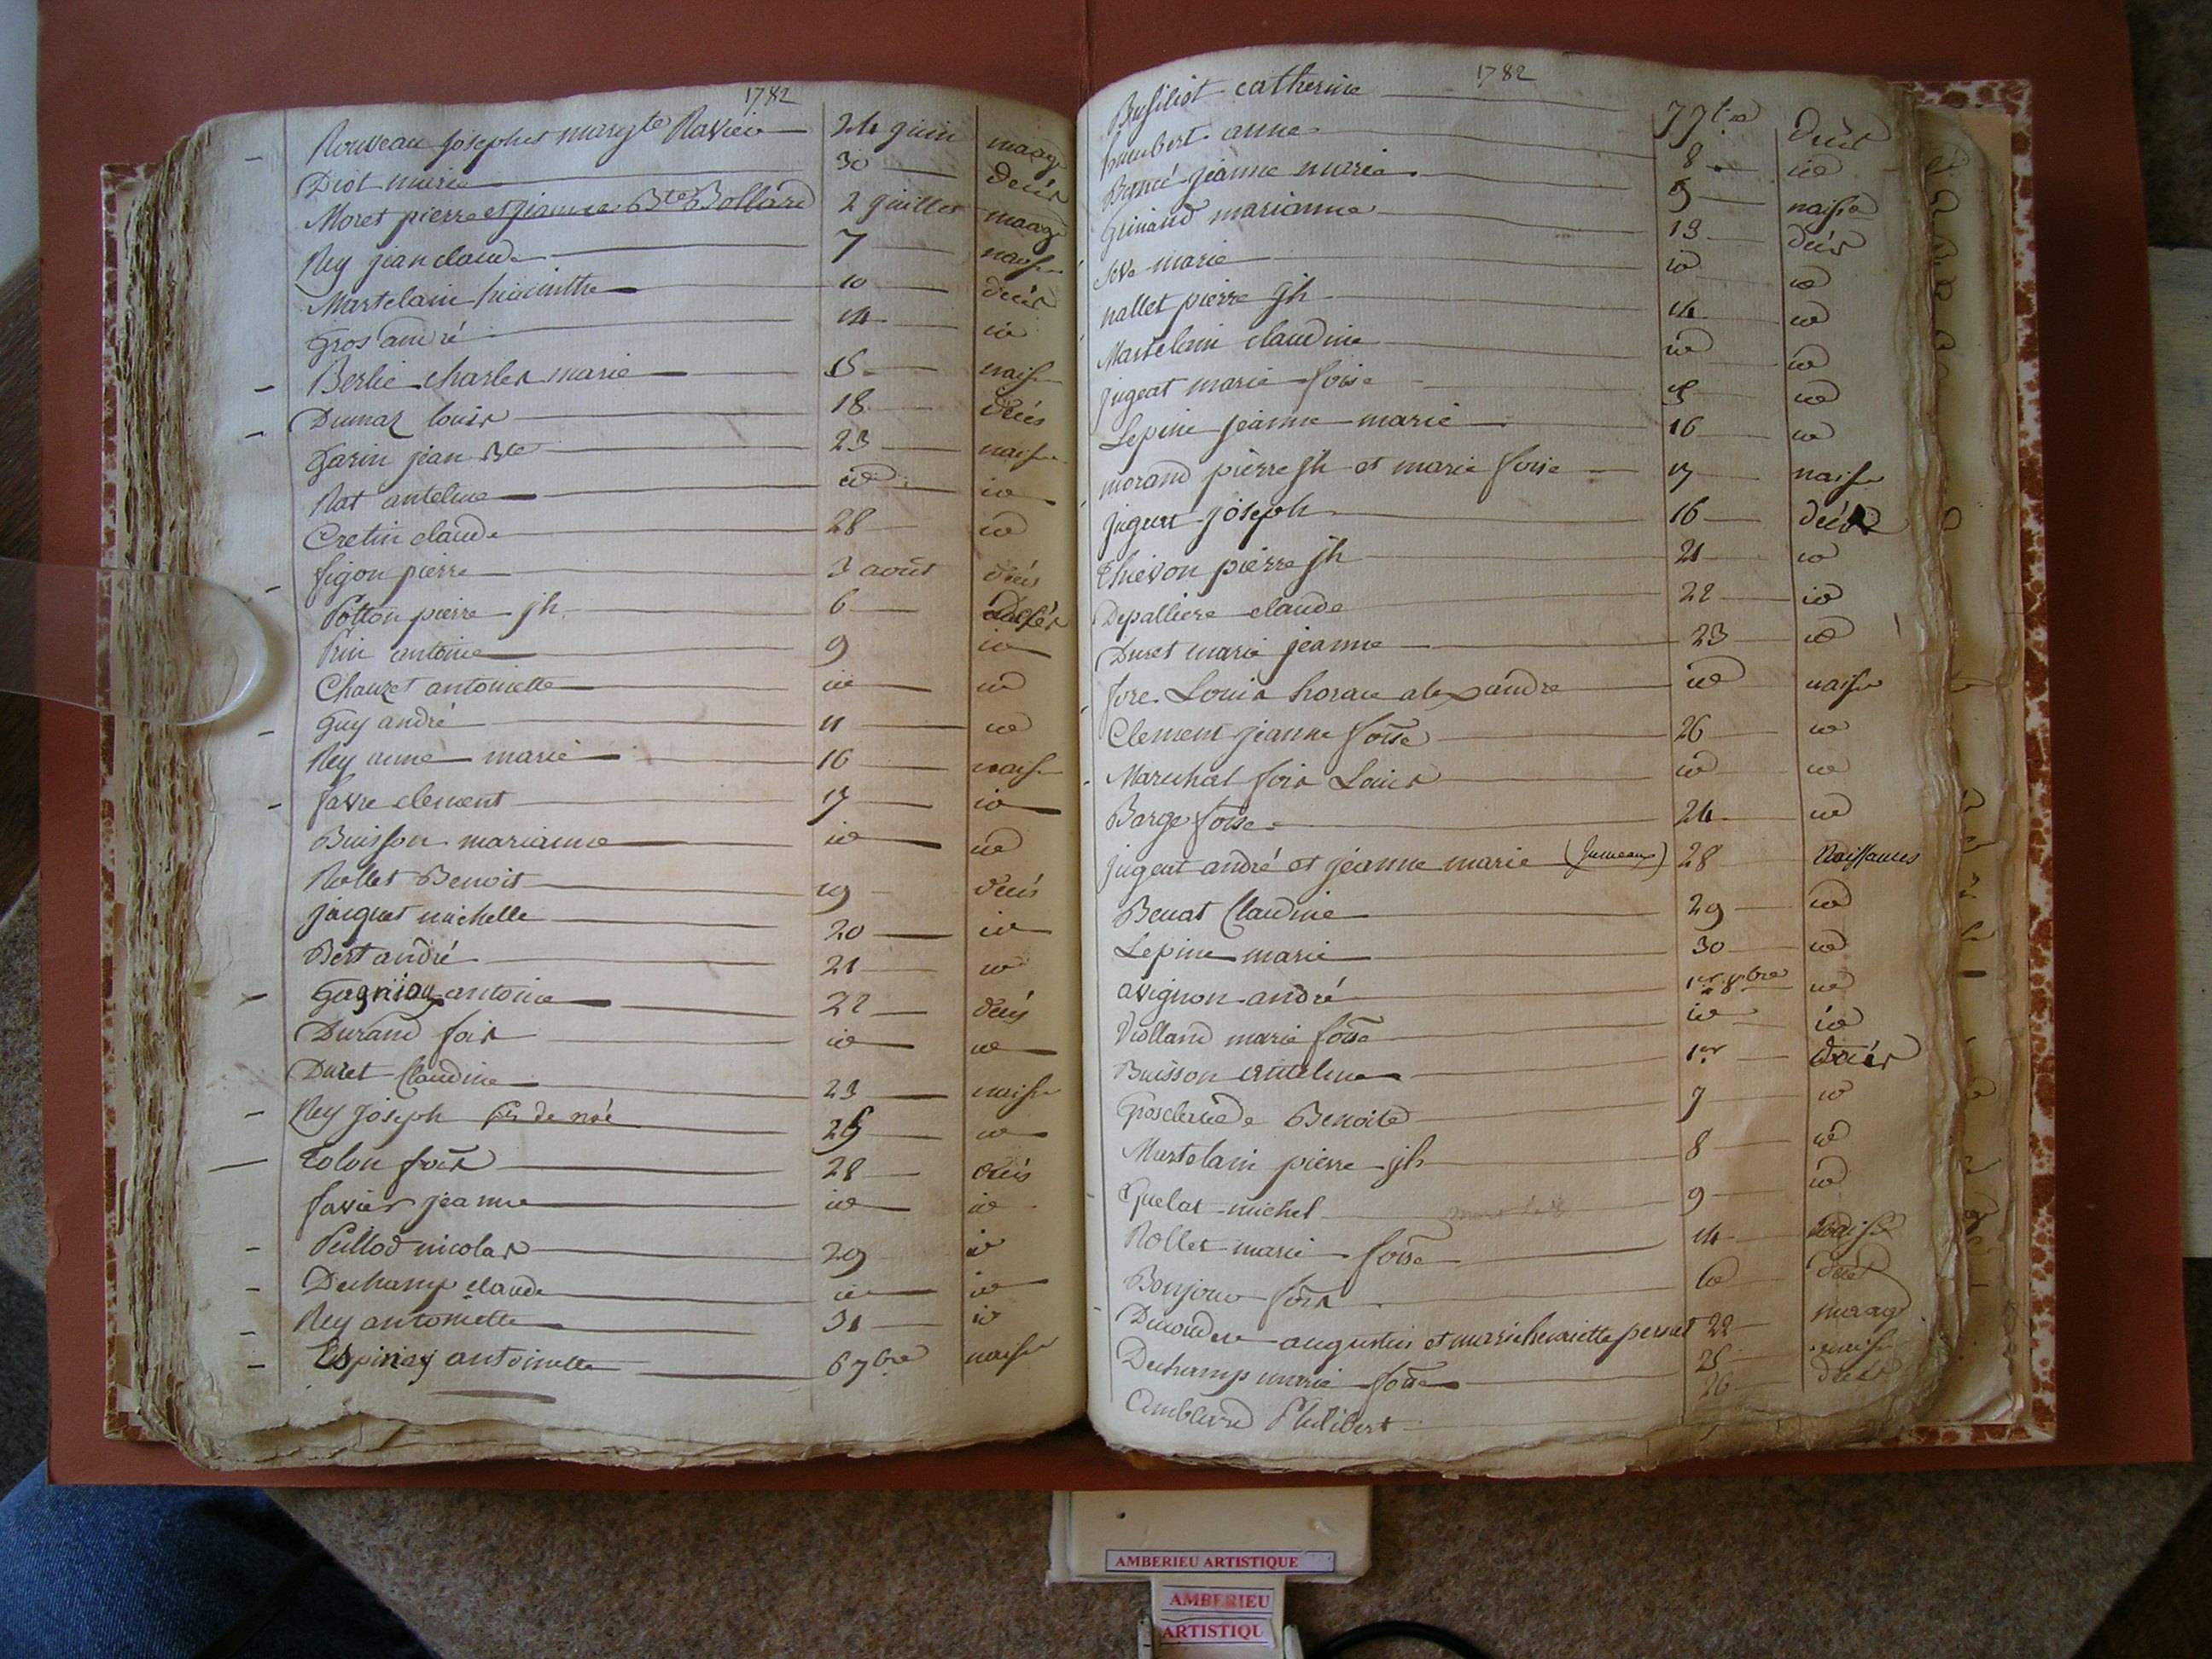 1782
Rouveau josephet margte Ravier 24 juin maage
Diot marie 30 décès
Moret pierre et jeanne Bte Bollard 2 juillet maage
Rey jean claude 7 naisse
Martelain hiacinthe 10 décès
Gros andré 14 id
Berlie charles marie 15 naisse
Dumaz louis 18 décès
Garin jean Bte 23 naisse
Rat anteline id id
Cretin claude 28 id
figon pierre 3 août décès
Potton pierre jh 6 décès
Prin antoine 9 id
Chauzet antoinette id id
Guy andré 11 id
Rey anne marie 16 naisse
favre clement 17 id
Buisson marianne id id
Rollet Benoit 19 décès
jacquet michelle 20 id
Bert andré 21 id
antoine 22 décès
Durand fois id id
Duret Claudine 23 naisse
Rey joseph fils de noé 25 id
Colon fois 28 décès
favier jeanne id id
Peillod nicolas 29 id
Duchamp claude id id
Rey antoinette 31 id
Espinay antoinette 6 7bre naisse
1782
Busiliot catherine 7 7bre décès
humbert anne 8 id
jeanne marie 9 naisse
Grinand marianne 13 décès
Seve marie id id
nallet pierre jh 14 id
Martelain claudine id id
jugeat marie foise 15 id
Lepine jeanne marie 16 id
morand pierre jh et marie foise 17 naisse
jugeat joseph 16 décès
Thievon pierre jh 21 id
Depalliere claude 22 id
Duret marie jeanne 23 id
fore Louis horace alexandre id naisse
Clement jeanne foise 26 id
Marechal fois Louis id id
Barge foise 24 id
jugeat andré et jeanne marie (jumeaux) 28 Naissances
Benat Claudine 29 id
Lepine marie 30 id
avignon andré 1er 8bre id
Violland marie foise id id
Buisson anteline 1er décès
Grosclaude Benoite 7 id
Martelain pierre jh 8 id
Quelat michel 9 id
Rollet marie foise 14 naisse
Bonjour fois id décès
augustin et marie henriette persut 22 maage
Duchamp marie foise 25 naisse
Amblard Philibert 26 décès
AMBERIEU ARTISTIQUE
AMBERIEU
ARTISTIQU